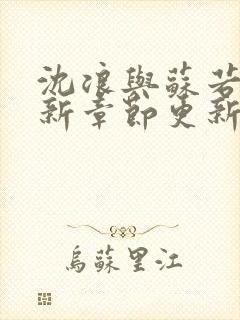 沈浪與蘇若
新章節更新
烏蘇里江